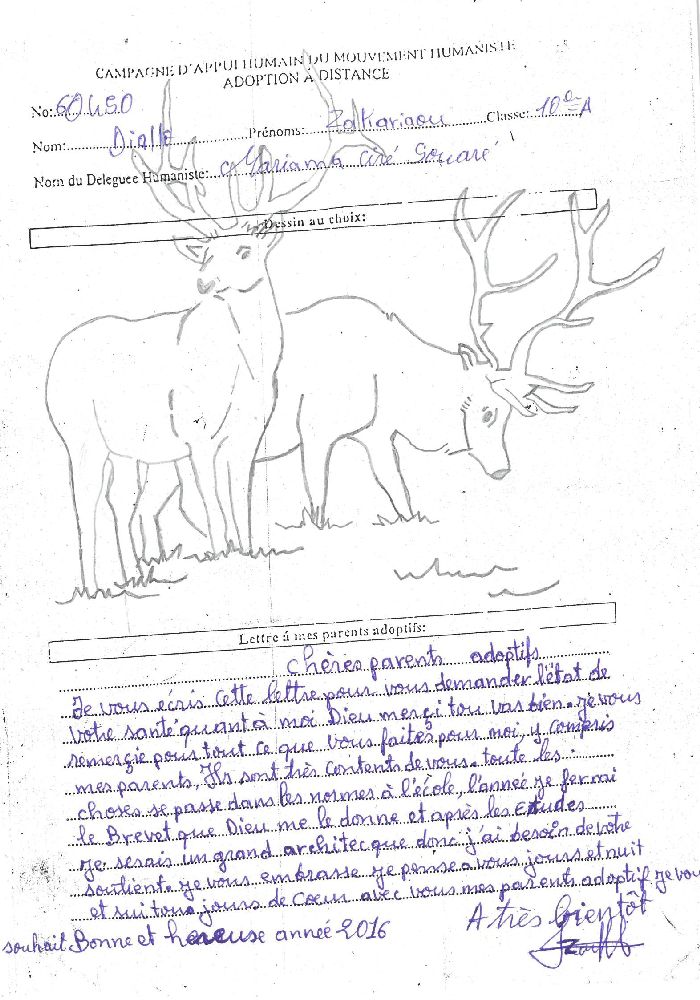 CAMPAGNE D'APPUI HUMAIN DU MOUVEMENT HUMANISTE
ADOPTION A DISTANCE
No: 60450
Nom: Diallo Prénoms: Zakariaou Classe: 10e A
Nom du Deleguee Humaniste: Mariama Ciré Souaré
Dessin au choix:
Lettre á mes parents adoptifs:
chères parents adoptifs
Je vous écris cette lettre pour vous demander l'état de
votre santé quant à moi Dieu merçi tou vas bien. je vous
remerçie pour tout ce que vous faites pour moi, y compris
mes parents, Ils sont très contents de vous. toute les
choses se passe dans les normes à l'école, l'anneé je fer mai
le Brevet que Dieu me le donne et après les Etudes
je serais un grand architecque donc j'ai besoin de votre
soutient. je vous embrasse je pense a vous jours et nuit
et sui tous jours de Coeur avec vous mes parents adoptif je vou
souhait Bonne et heureuse anneé 2016
A très bientôt